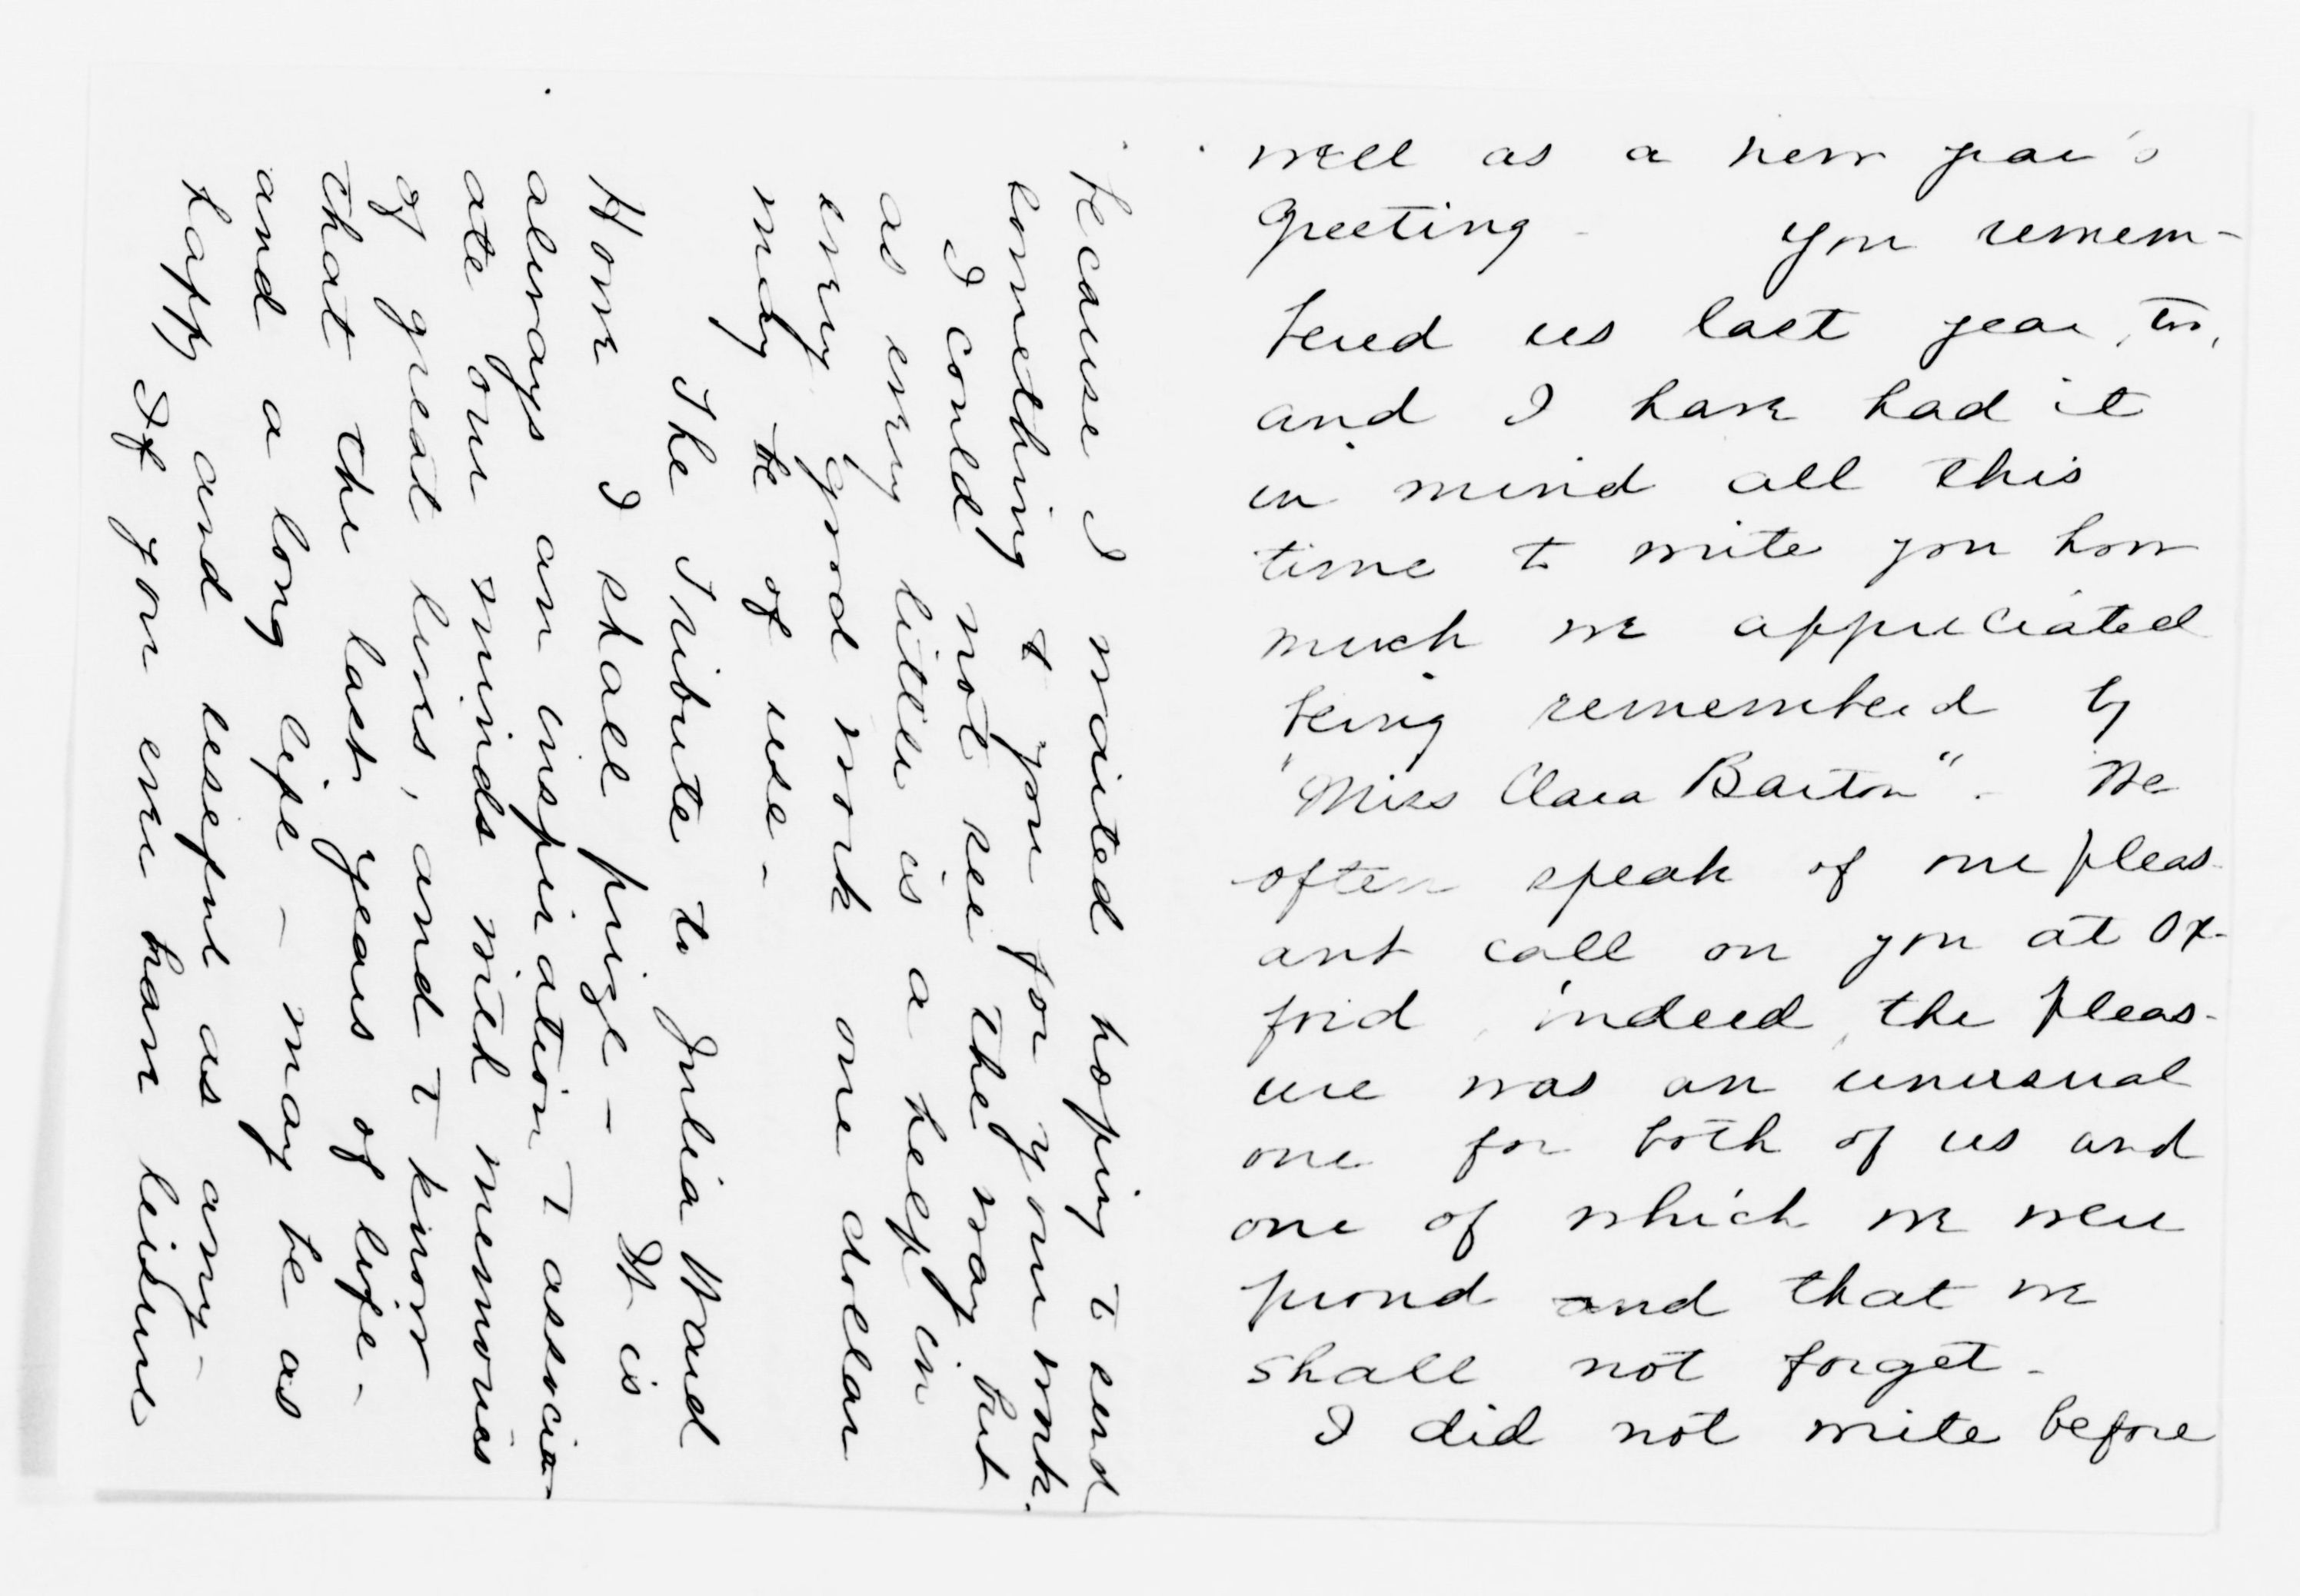 well as a new year's
Greeting - You remem-
bered us last year, too,
and I have had it
in mind all this
time to write you how
much we appreciated
being remembered by
"Miss Clara Barton". We
often speak of our pleas-
ant call on you at Ox-
ford, indeed, the pleas-
ure was an unusual
one for both of us and
one of which we were
proud and that we
shall not forget -
I did not write before
because I waited hoping to send
something to you for your work.
I could not see the way but
as every little is a help in
every good work one dollar
may be of use -
The Tribute to Julia Ward
Howe I shall prize - It is
always an inspiration to associa-
ate our minds with memories
of great lives, and to know
that the last years of life -
and a long life - may be as
happy and useful as any -
If you ever have leisure